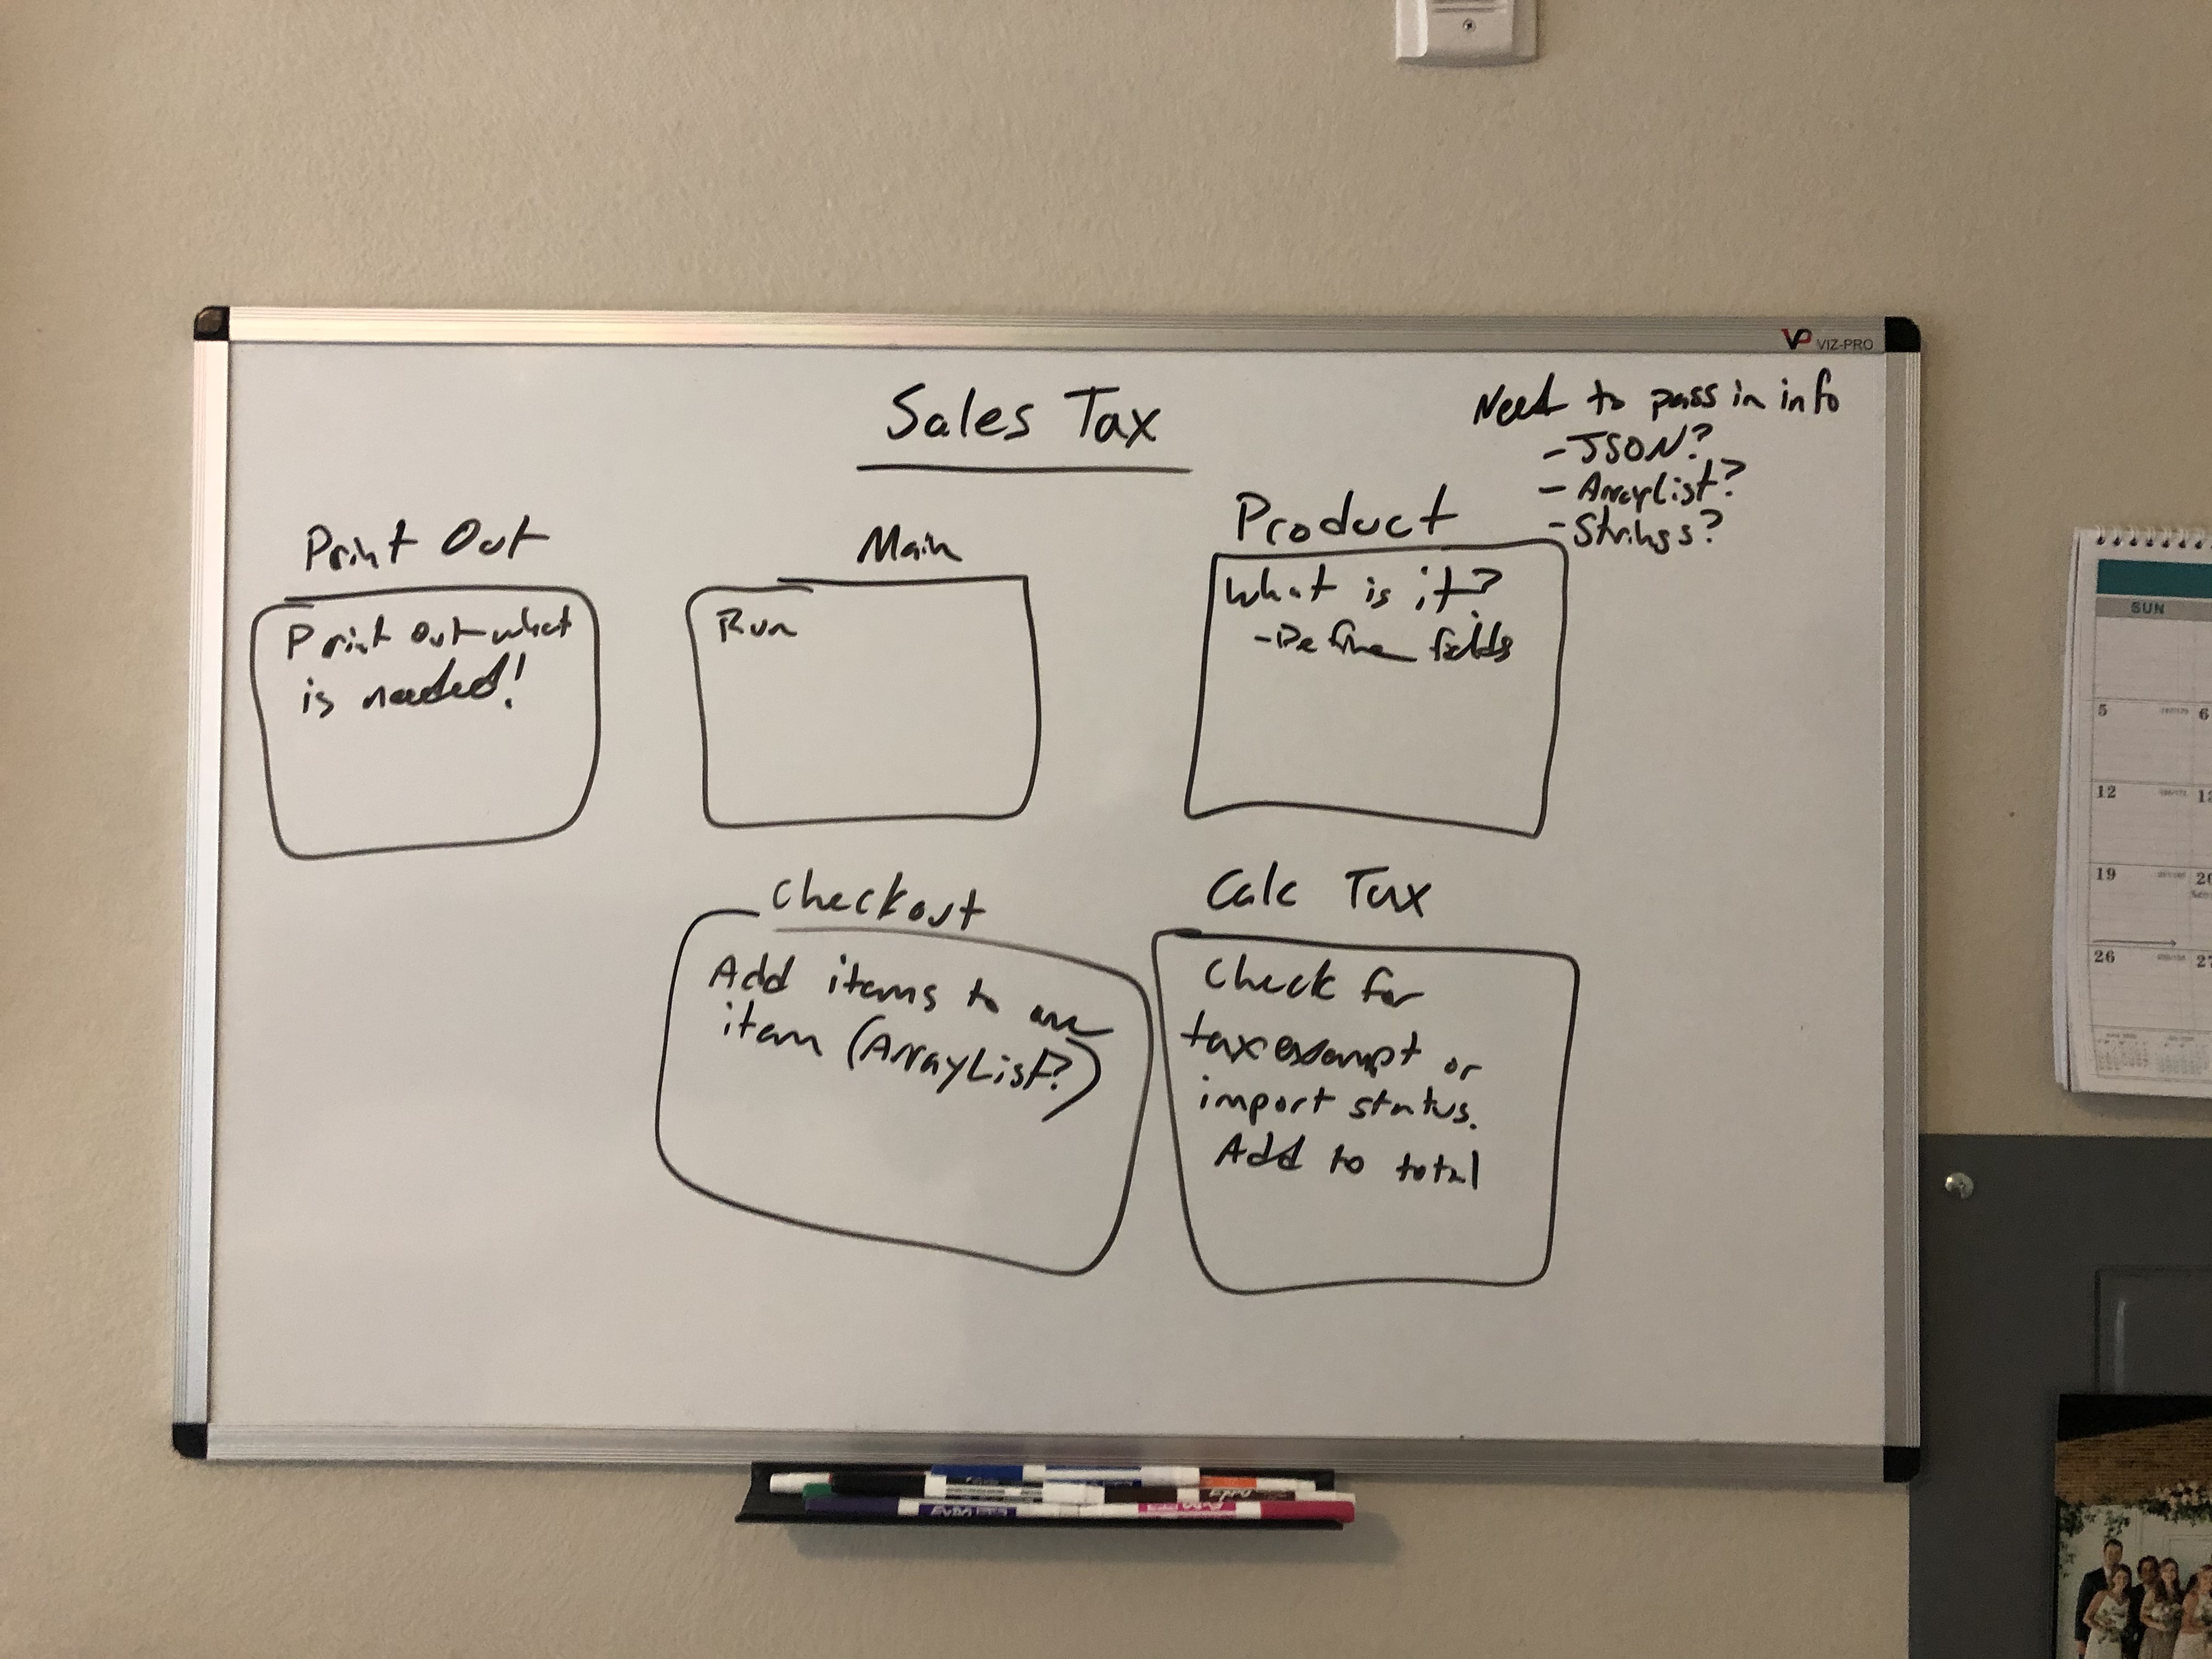 VP VIZ-PRO
Sales Tax
Need to pass in info
- JSON?
- ArrayList?
- Strings?
Print Out
Print out what
is needed!
Main
Run
Product
What is it?
- Define fields
Checkout
Add items to one
item (ArrayList?)
Calc Tax
Check for
tax exempt or
import status.
Add to total
SUN
5 6
12
19
26
EXPO